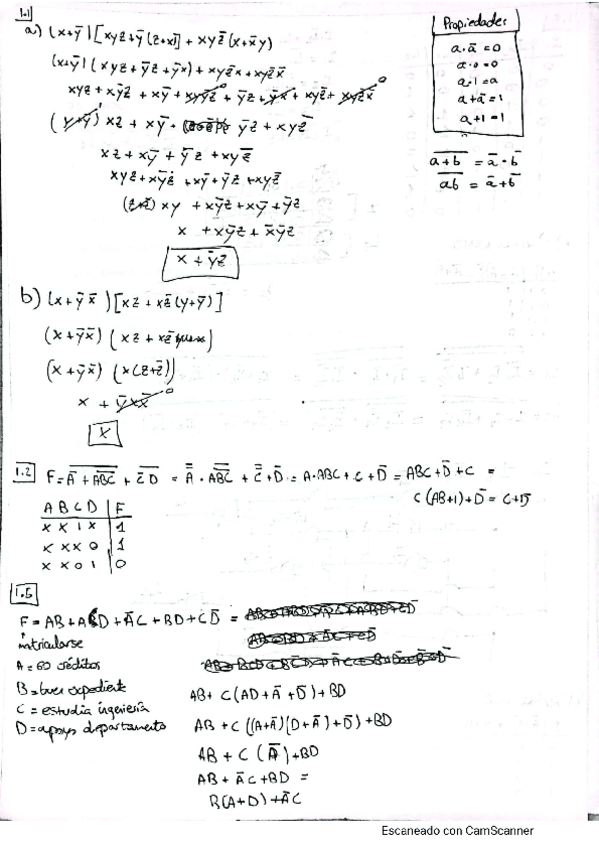 1.1
a) (x+ȳ)[xyz+ȳ(z+x)]+xyz̄(x+x̄y)
(x+ȳ)(xyz+ȳz+ȳx)+xyz̄x+xyz̄x̄
xyz+xȳz+xȳ+xyȳz+ȳz+ȳx+xyz̄+xyz̄x̄
(y+ȳ)xz+xȳ+ ȳz+xyz̄
xz+xȳ+ȳz+xyz̄
xyz+xȳz+xȳ+ȳz+xyz̄
(z+z̄)xy+xȳz+xȳ+ȳz
x+xȳz+x̄ȳz
x+ȳz
Propiedades
a·ā=0
a·0=0
a·1=a
a+ā=1
a+1=1
\overline{a+b}=ā·b̄
\overline{ab}=ā+b̄
b) (x+ȳx̄)[xz+xz̄(y+ȳ)]
(x+ȳx̄)(xz+xz̄)
(x+ȳx̄)(x(z+z̄))
x+ȳxx̄ 0
x
1.2 F=\overline{Ā+\overline{ABC}}+\overline{C̄D}=\overline{Ā}·\overline{\overline{ABC}}+\overline{C̄}+D̄=A·ABC+C+D̄=ABC+D̄+C=
C(AB+1)+D̄=C+D̄
A B C D | F
x x 1 x | 1
x x x 0 | 1
x x 0 1 | 0
1.5
F=AB+ACD+ĀC+BD+CD̄=
matricularse
A=60 créditos
B=buen expediente
C=estudia ingeniería
D=apoyo departamento
AB+C(AD+Ā+D̄)+BD
AB+C((A+Ā)(D+Ā)+D̄)+BD
AB+C(Ā)+BD
AB+ĀC+BD=
B(A+D)+ĀC
Escaneado con CamScanner